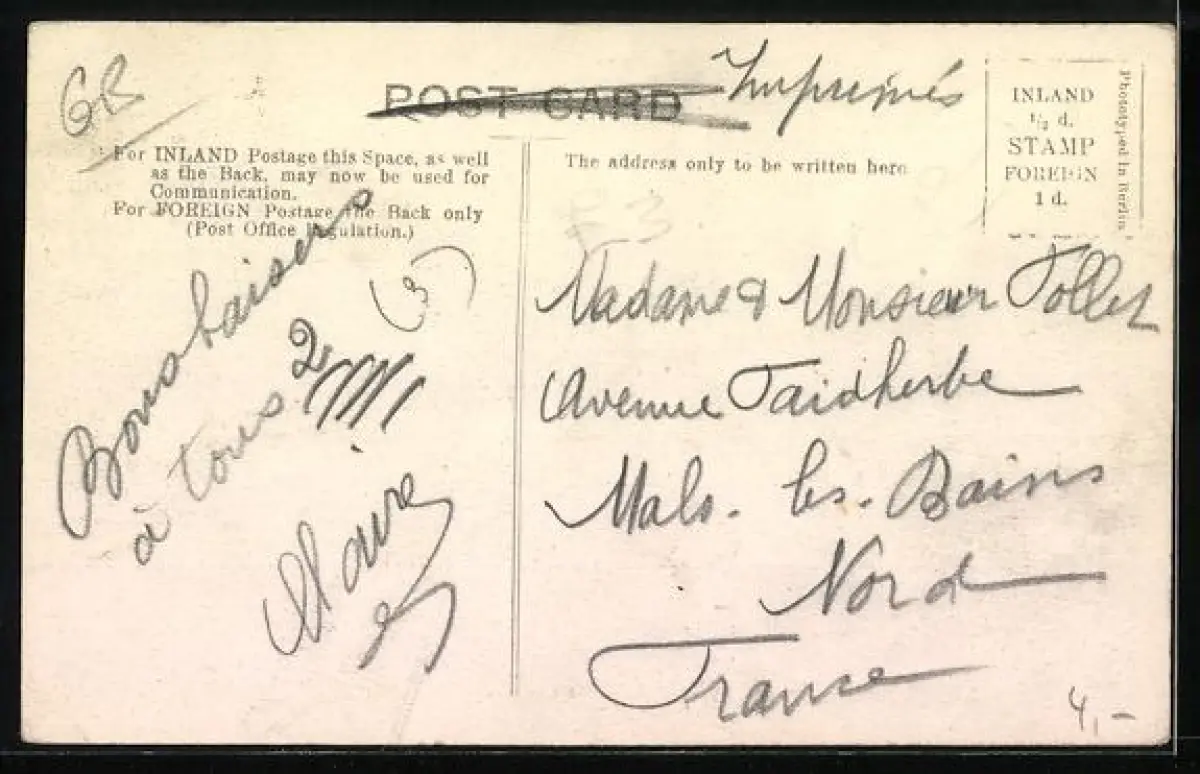 GB
POST CARD Imprimés
For INLAND Postage this Space, as well
as the Back, may now be used for
Communication.
For FOREIGN Postage the Back only
(Post Office Regulation.)
The address only to be written here
INLAND
½ d.
STAMP
FOREIGN
1 d.
Phototyped in Berlin
E3
(5)
Bons baisers
à tous 2
Madame & Monsieur Follet
Avenue Faidherbe
Malo. les. Bains
Nord
France
4,-